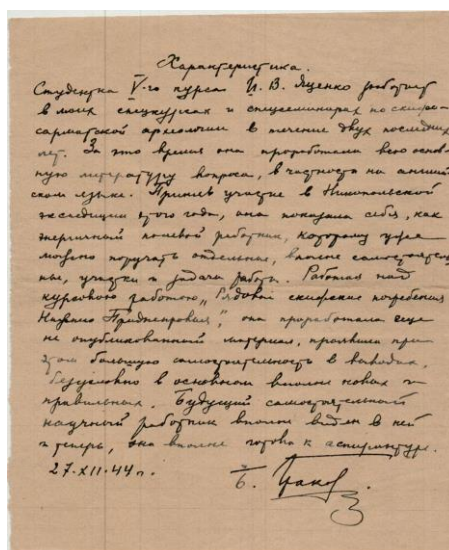 Характеристика.
Студентка V-го курса И. В. Яценко работает
в моих спецкурсах и спецсеминарах по скифо-
сарматской археологии в течение двух последних
лет. За это время она проработала всю основ-
ную литературу вопроса, в частности на англий-
ском языке. Приняв участие в Никопольской
экспедиции этого года, она показала себя, как
энергичный полевой работник, которому уже
можно поручать отдельные, вполне самостоятель-
ные, участки и задачи работы. Работая над
курсовою работою „Рядовые скифские погребения
Нижнего Приднепровья", она проработала еще
не опубликованный материал, проявила при
этом большую самостоятельность в выводах,
безусловно в основном вполне новых и
правильных. Будущий самостоятельный
научный работник вполне виден в ней
и теперь, она вполне готова к аспирантуре.
27.XII.44 г.
Б. Граков